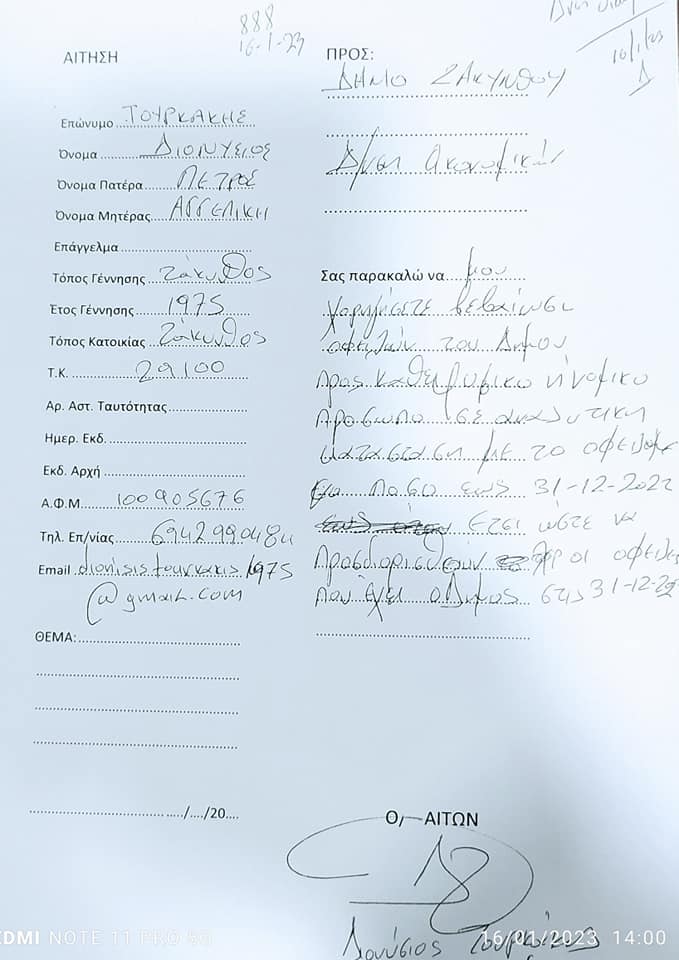 888
16-1-23
16/1/23
Δ
ΑΙΤΗΣΗ
Επώνυμο ΤΟΥΡΚΑΚΗΣ
Όνομα ΔΙΟΝΥΣΙΟΣ
Όνομα Πατέρα ΠΕΤΡΟΣ
Όνομα Μητέρας ΑΓΓΕΛΙΚΗ
Επάγγελμα
Τόπος Γέννησης Ζάκυνθος
Έτος Γέννησης 1975
Τόπος Κατοικίας Ζάκυνθος
Τ.Κ. 29100
Αρ. Αστ. Ταυτότητας
Ημερ. Εκδ.
Εκδ. Αρχή
Α.Φ.Μ. 100905676
Τηλ. Επ/νίας 6942990484
Email dionisistourkakis1975
@gmail.com
ΘΕΜΑ:
/..../20....
ΠΡΟΣ:
ΔΗΜΟ ΖΑΚΥΝΘΟΥ
Δ/νση Οικονομικών
Σας παρακαλώ να μου
χορηγήσετε βεβαίωση
οφειλών του Δήμου
προς κάθε φυσικό ή νομικό
πρόσωπο σε αναλυτική
κατάσταση με το οφειλόμε
νο ποσό εως 31-12-2022
ετσι ώστε να
προσδιορισθούν οι οφειλες
που έχει ο Δήμος στις 31-12-22
Ο, ΑΙΤΩΝ
Διονύσιος Τουρκάκης
REDMI NOTE 11 PRO 5G
16/01/2023 14:00